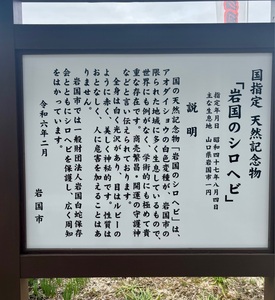 国指定 天然記念物
「岩国のシロヘビ」
指定年月日 昭和四十七年八月四日
主な生息地 山口県岩国市一円
説明
国の天然記念物「岩国のシロヘビ」は、
アオダイショウの白色変種が、岩国市の
限られた地域に多く生息しているもので、
世界にも例がなく、学術的にも極めて貴
重な存在です。商売繁昌・開運の守護神
などと言い伝えられております。
全身は白く光沢があり、目はルビーの
ように赤く、美しく神秘的です。性質は
おとなしく、人に危害を加えることはあ
りません。
岩国市では一般財団法人岩国白蛇保存
会とともにシロヘビを保護し、広く周知
をはかっています。
令和六年二月
岩国市